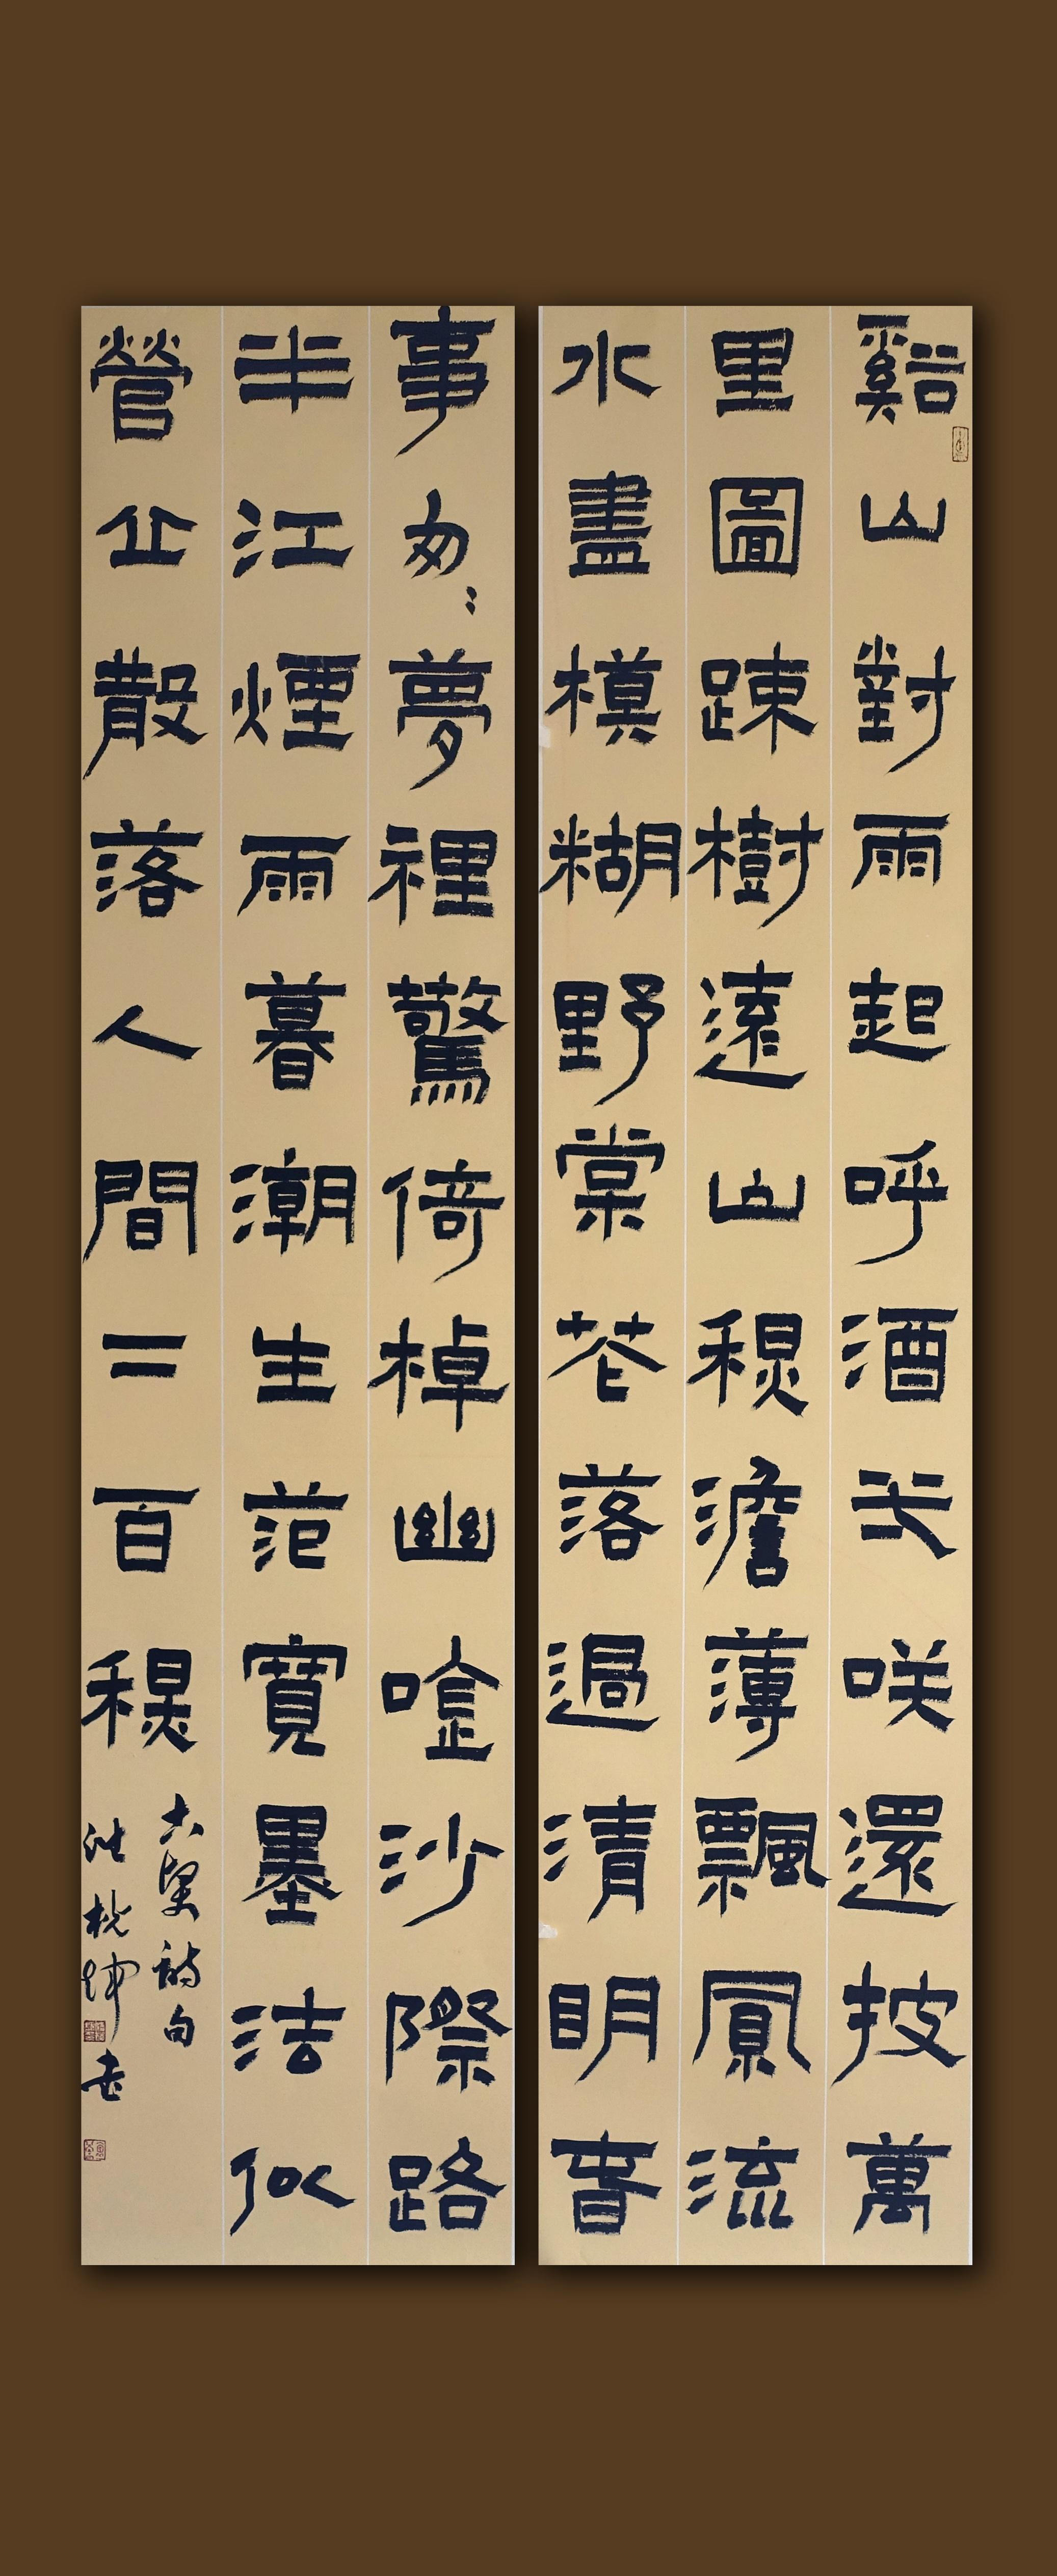 谿山對雨起呼酒弌咲還披萬
里圖踈樹遠山秋澹薄飄風流
水盡模糊野棠花落過清明春
事匆〻夢裡驚倚棹幽唫沙際路
半江煙雨暮潮生范寬墨法似
營丘散落人間二百秋
大癡詩句
書